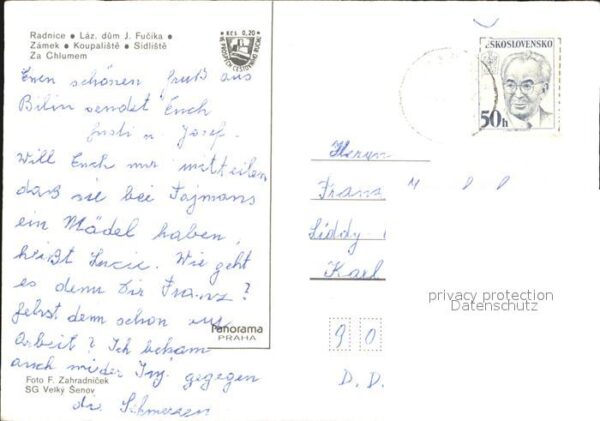 Radnice • Láz. dům J. Fučíka •
Zámek • Koupaliště • Sídliště
Za Chlumem
KČS 0,20
ČESKOSLOVENSKO
50h
Einen schönen Gruß aus
Bilin sendet Euch
Gusti u. Josef.
Will Euch nur mitteilen
daß sie bei Fajmans
ein Mädel haben,
heißt Lucie. Wie geht
es denn Dir Franz?
gehst denn schon zur
Arbeit? Ich bekam
auch wieder Inj. gegegen
die Schmerzen
Panorama
PRAHA
Foto F. Zahradníček
SG Velký Šenov
Herrn
Franz
Liddy
Karl
privacy protection
Datenschutz
90
D.D.